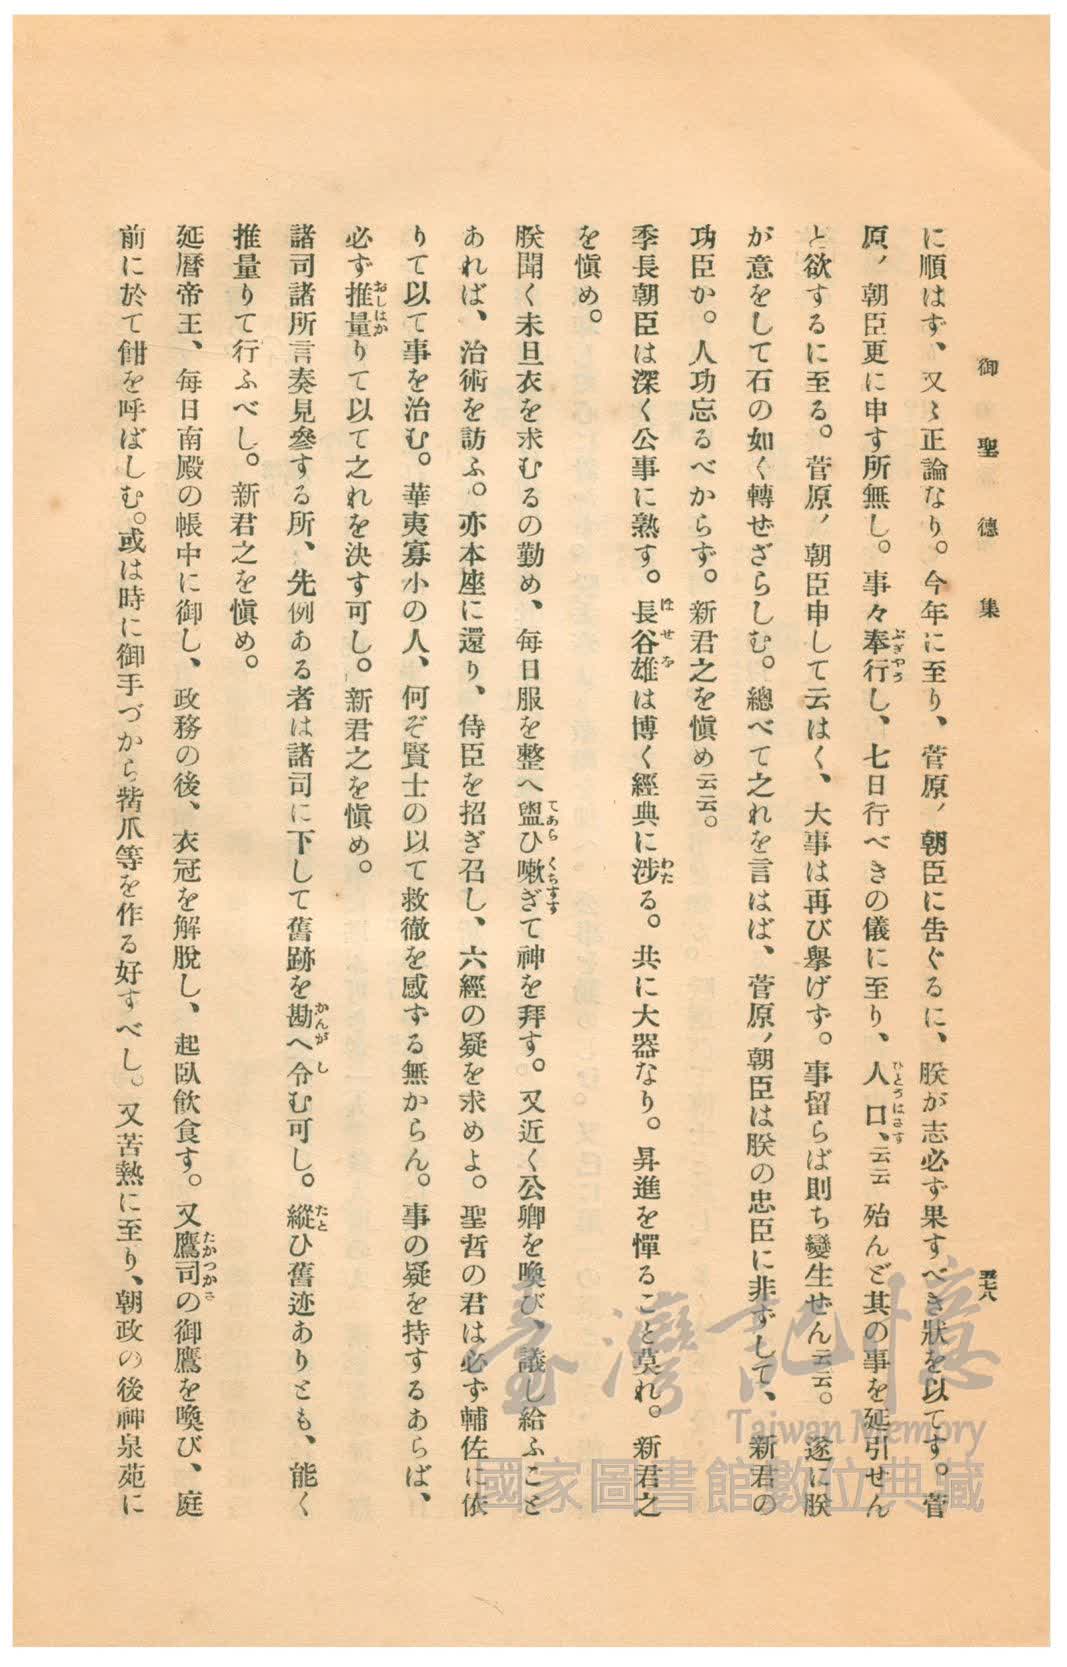 御聖德集
五七八
に順はず、又〻正論なり。今年に至り、菅原ノ朝臣に告ぐるに、朕が志必ず果すべき狀を以てす。菅
原ノ朝臣更に申す所無し。事々奉行し、七日行べきの儀に至り、人口、云云 殆んど其の事を延引せん
と欲するに至る。菅原ノ朝臣申して云はく、大事は再び擧げず。事留らば則ち變生せん云云。遂に朕
が意をして石の如く轉ぜざらしむ。總べて之れを言はば、菅原ノ朝臣は朕の忠臣に非ずして、新君の
功臣か。人功忘るべからず。新君之を愼め云云。
季長朝臣は深く公事に熟す。長谷雄は博く經典に涉る。共に大器なり。昇進を憚ること莫れ。新君之
を愼め。
朕聞く未旦衣を求むるの勤め、每日服を整へ盥ひ嗽ぎて神を拜す。又近く公卿を喚び、議し給ふこと
あれば、治術を訪ふ。亦本座に還り、侍臣を招ぎ召し、六經の疑を求めよ。聖哲の君は必ず輔佐に依
りて以て事を治む。華夷寡小の人、何ぞ賢士の以て救徹を感ずる無からん。事の疑を持するあらば、
必ず推量りて以て之れを決す可し。新君之を愼め。
諸司諸所言奏見參する所、先例ある者は諸司に下して舊跡を勘へ令む可し。縱ひ舊迹ありとも、能く
推量りて行ふべし。新君之を愼め。
延曆帝王、每日南殿の帳中に御し、政務の後、衣冠を解脫し、起臥飮食す。又鷹司の御鷹を喚び、庭
前に於て餌を呼ばしむ。或は時に御手づから觜爪等を作る好すべし。又苦熱に至り、朝政の後神泉苑に
臺灣記憶
Taiwan Memory
國家圖書館數位典藏